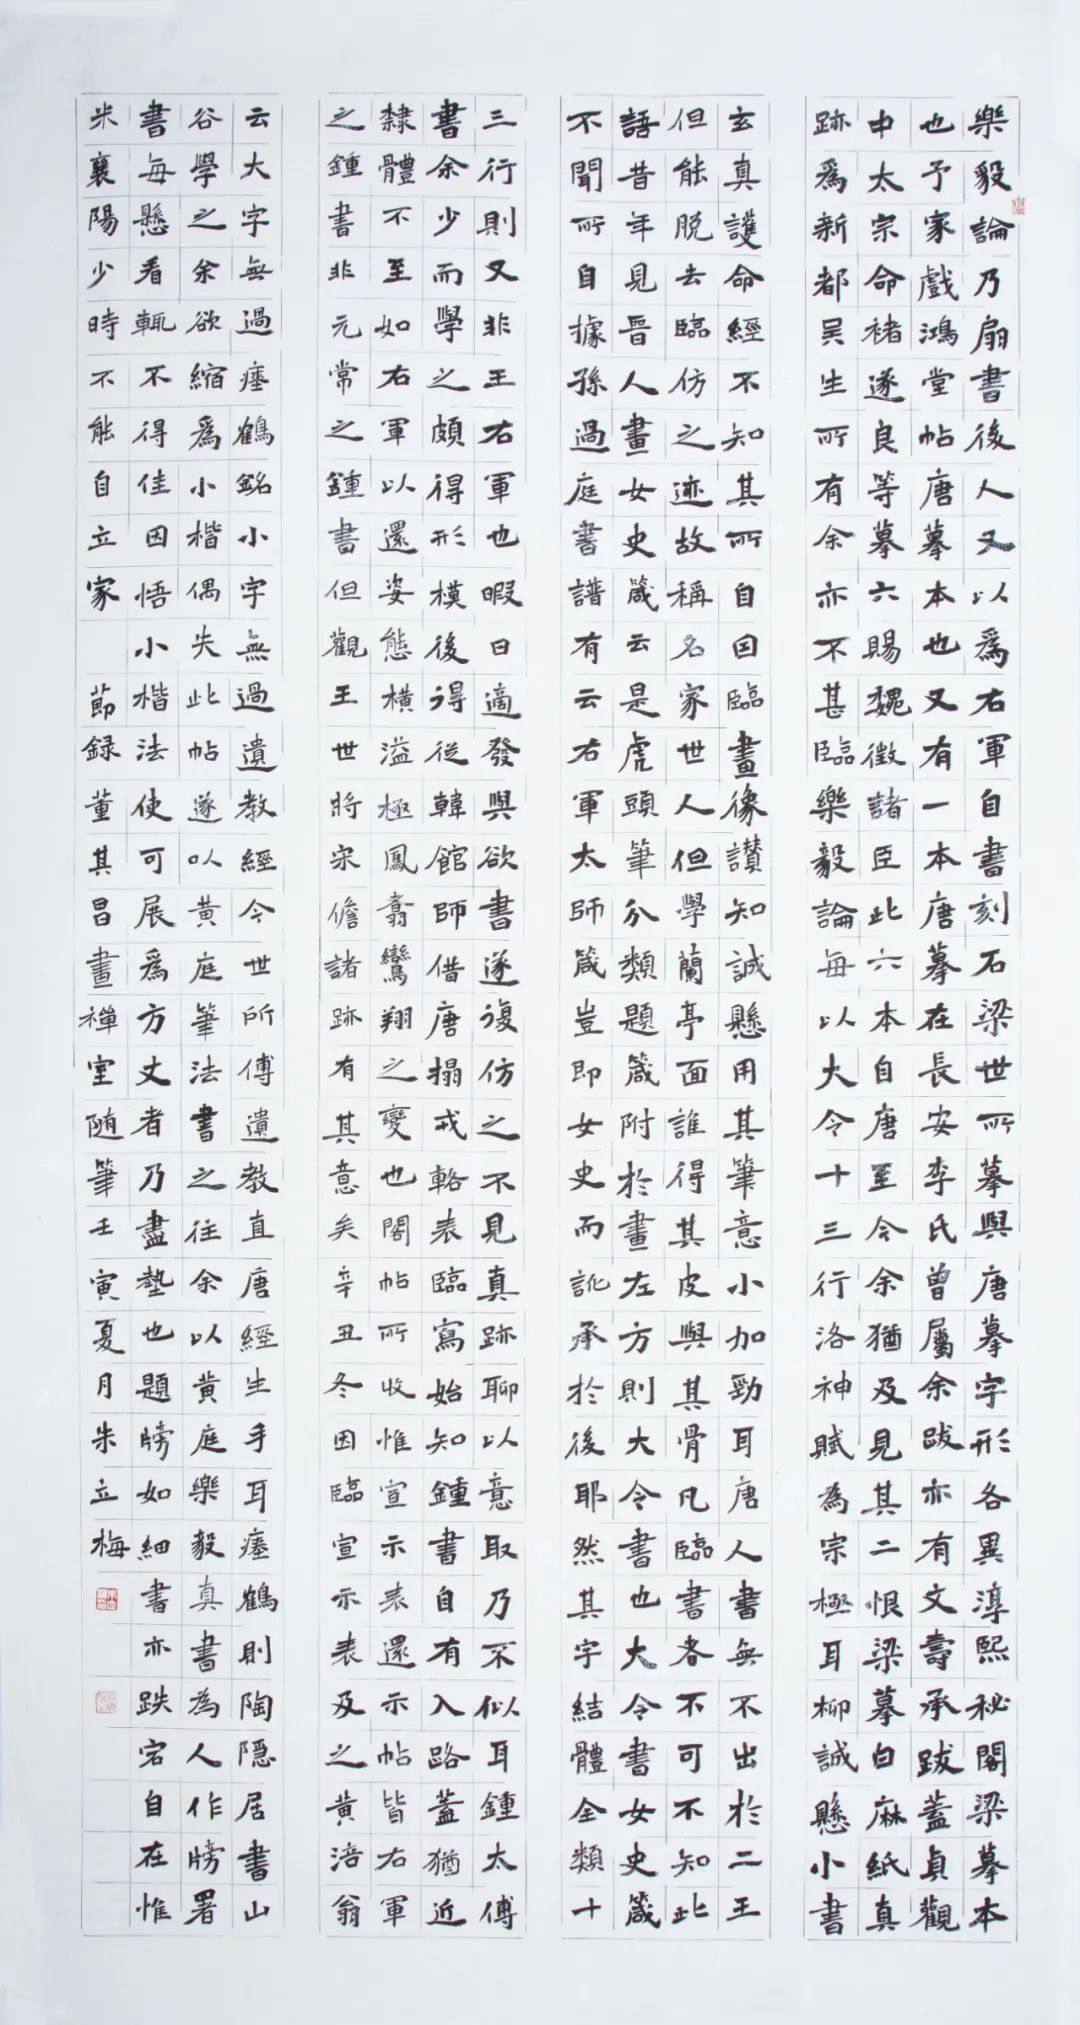 樂毅論乃扇書後人又以爲右軍自書刻石梁世所摹與唐摹字形各異淳熙秘閣梁摹本
也予家戲鴻堂帖唐摹本也又有一本唐摹在長安李氏曾屬余跋亦有文壽承跋蓋貞觀
中太宗命褚遂良等摹六賜魏徵諸臣此六本自唐至今余猶及見其二恨梁摹白麻紙真
跡爲新都吳生所有余亦不甚臨樂毅論每以大令十三行洛神賦為宗極耳柳誠懸小書
玄真護命經不知其所自因臨畫像讃知誠懸用其筆意小加勁耳唐人書無不出於二王
但能脫去臨仿之迹故稱名家世人但學蘭亭面誰得其皮與其骨凡臨書各不可不知此
語昔年見晉人畫女史箴云是虎頭筆分類題箴附於畫左方則大令書也大令書女史箴
不聞所自據孫過庭書譜有云右軍太師箴豈即女史而訛承於後耶然其字結體全類十
三行則又非王右軍也暇日適發興欲書遂復仿之不見真跡聊以意取乃不似耳鍾太傅
書余少而學之頗得形模後得從韓館師借唐搨戎輅表臨寫始知鍾書自有入路蓋猶近
隸體不至如右軍以還姿態橫溢極鳳翥鸞翔之變也閣帖所收惟宣示表還示帖皆右軍
之鍾書非元常之鍾書但觀王世將宋儋諸跡有其意矣辛丑冬因臨宣示表及之黃涪翁
云大字無過瘞鶴銘小字無過遺教經今世所傳遺教直唐經生手耳瘞鶴則陶隱居書山
谷學之余欲縮爲小楷偶失此帖遂以黃庭筆法書之往余以黃庭樂毅真書為人作牓署
書每懸看輒不得佳因悟小楷法使可展爲方丈者乃盡勢也題牓如細書亦跌宕自在惟
米襄陽少時不能自立家 節録董其昌畫禪室随筆壬寅夏月朱立梅